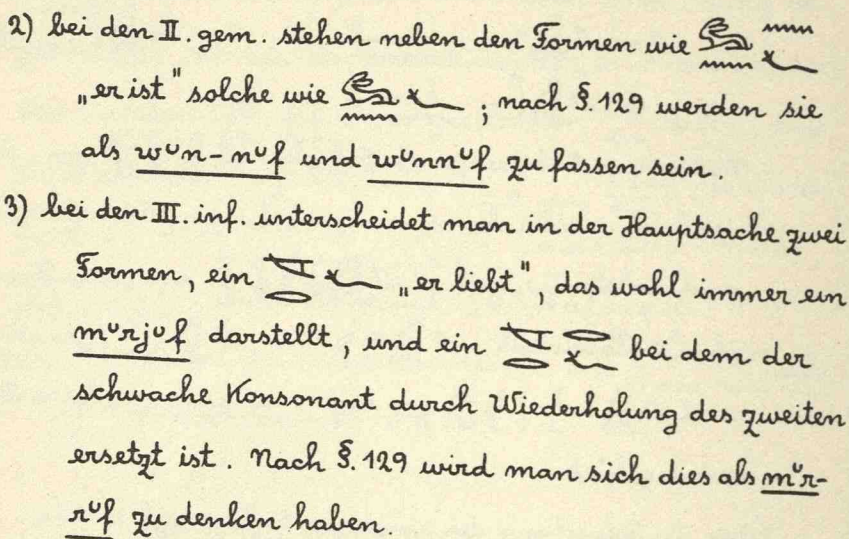 2) bei den II. gem. stehen neben den Formen wie 𓃹𓈖𓈖𓆑
„er ist" solche wie 𓃹𓈖𓆑 ; nach §. 129 werden sie
als wᵘn-nᵘf und wᵘnnᵘf zu fassen sein.
3) bei den III. inf. unterscheidet man in der Hauptsache zwei
Formen, ein 𓌻𓂋𓆑 „er liebt", das wohl immer ein
mᵘrjᵘf darstellt, und ein 𓌻𓂋𓂋𓆑 bei dem der
schwache Konsonant durch Wiederholung des zweiten
ersetzt ist. Nach §. 129 wird man sich dies als mᵘr-
rᵘf zu denken haben.